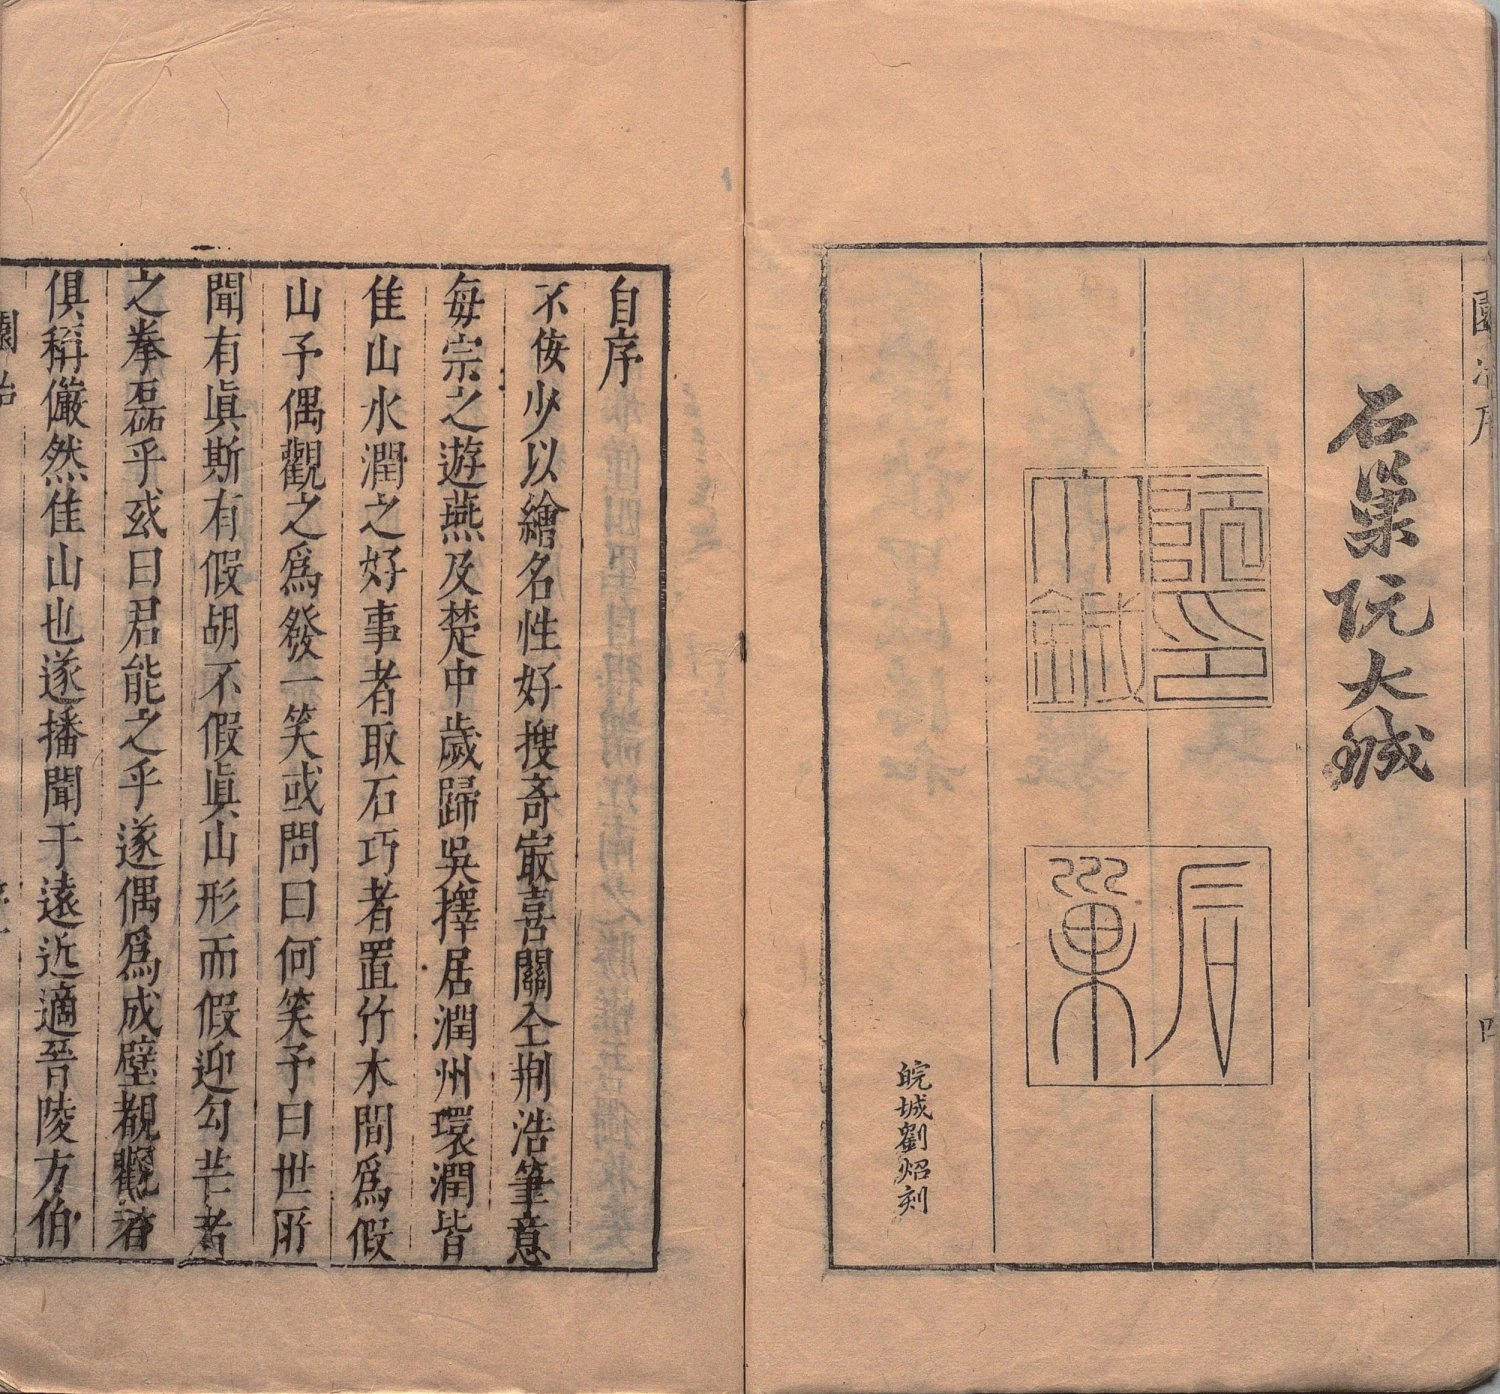 石巢阮大鋮
阮印
大鋮
石
巢
皖城劉炤刻
自序
不佞少以繪名性好搜奇㝡喜關仝荆浩筆意
每宗之遊燕及楚中歲歸吳擇居潤州環潤皆
佳山水潤之好事者取石巧者置竹木間爲假
山予偶觀之爲發一笑或問曰何笑予曰世所
聞有眞斯有假胡不假眞山形而假迎勾芒者
之拳磊乎或曰君能之乎遂偶爲成壁覩觀者
俱稱儼然佳山也遂播聞于遠近適晉陵方伯
園冶